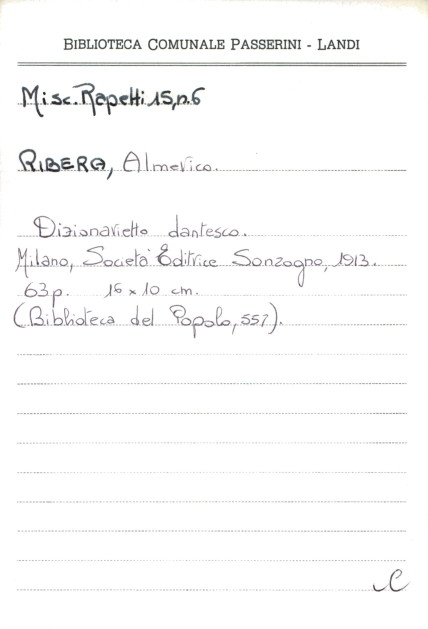 BIBLIOTECA COMUNALE PASSERINI - LANDI
Misc. Rapetti 15, n. 6
RIBERA, Almerico.
Dizionarietto dantesco.
Milano, Società Editrice Sonzogno, 1913.
63 p. 16 x 10 cm.
(Biblioteca del Popolo, 557).